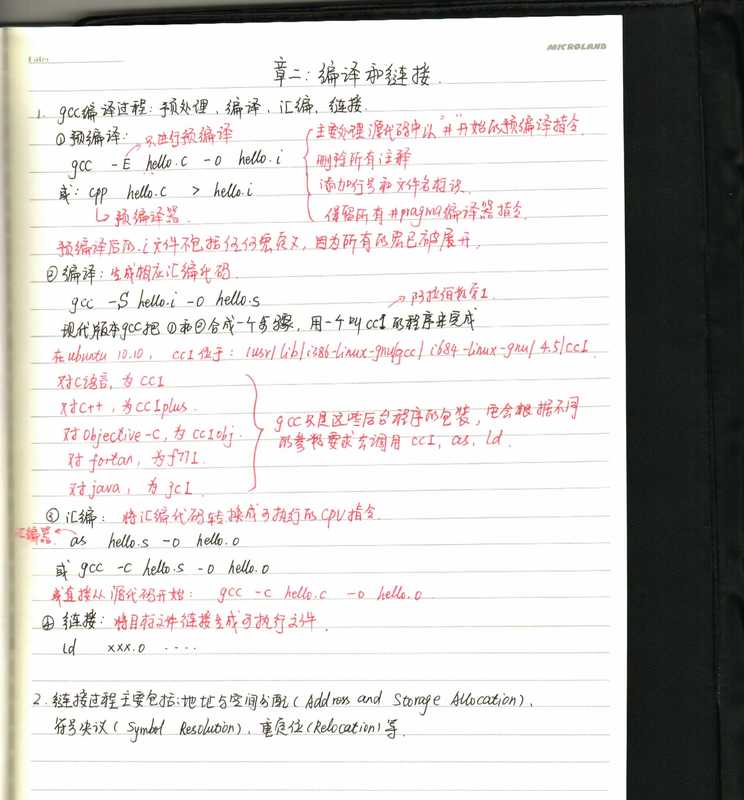 Date
MICROLAND
章二：编译和链接.
1. gcc编译过程：预处理、编译、汇编、链接.
①预编译：
只进行预编译
gcc -E hello.c -o hello.i
或：cpp hello.c > hello.i
预编译器.
主要处理源代码中以"#"开始的预编译指令
删除所有注释
添加行号和文件名标识.
保留所有#pragma编译器指令.
预编译后的.i文件不包括任何宏定义，因为所有的宏已被展开.
②编译：生成相应汇编代码.
gcc -S hello.i -o hello.s
阿拉伯数字1.
现代版本gcc把①和②合成一个步骤，用一个叫cc1的程序来完成
在ubuntu 10.10，cc1位于：/usr/lib/i386-linux-gnu/gcc/i684-linux-gnu/4.5/cc1.
对C语言，为cc1
对C++，为cc1plus.
对Objective-C，为cc1obj.
对fortan，为f771.
对java，为jc1.
gcc只是这些后台程序的包装，它会根据不同
的参数要求去调用cc1，as，ld.
③汇编：将汇编代码转换成可执行的CPU指令.
汇编器
as hello.s -o hello.o
或gcc -c hello.s -o hello.o
或直接从源代码开始：gcc -c hello.c -o hello.o
④链接：将目标文件链接生成可执行文件.
ld xxx.o ....
2.链接过程主要包括：地址与空间分配(Address and Storage Allocation)、
符号决议(Symbol Resolution)、重定位(Relocation)等.